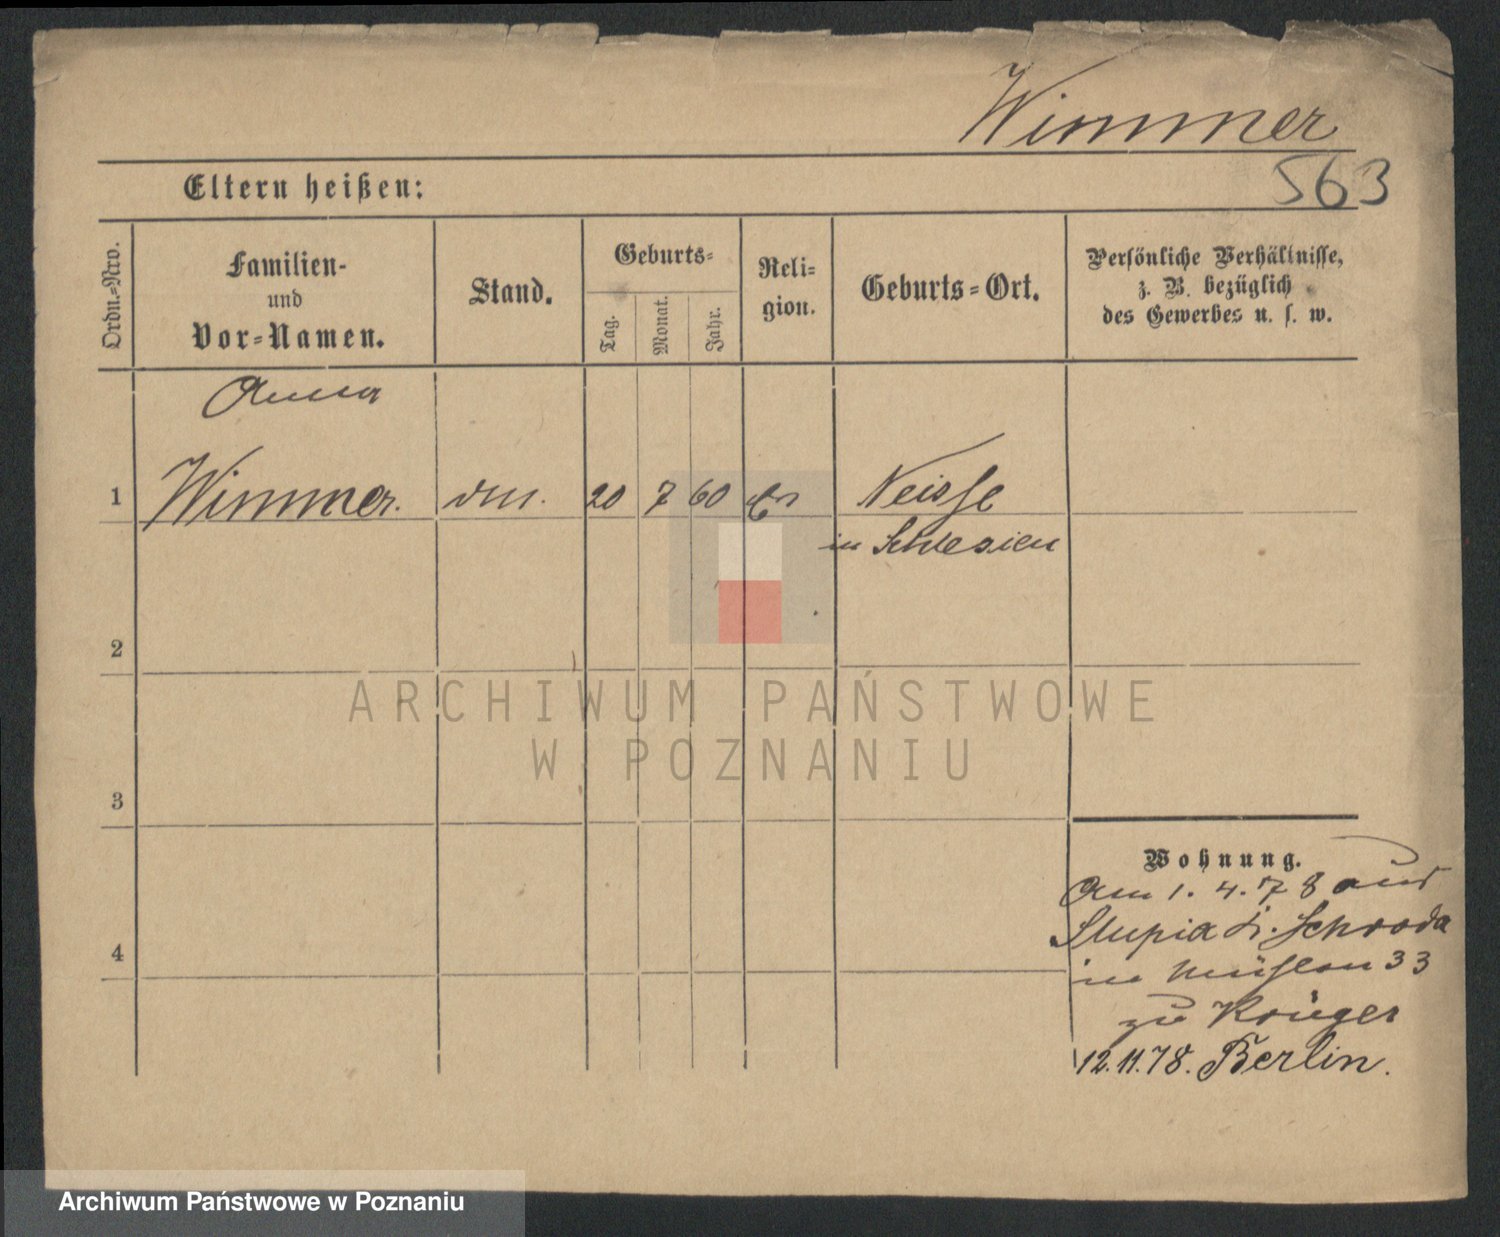 Wimmer
563
Eltern heißen:
Ordn.=Nro.
Familien-
und
Vor=Namen.
Stand.
Geburts=
Tag.
Monat.
Jahr.
Reli=
gion.
Geburts=Ort.
Persönliche Verhältnisse,
z. B. bezüglich
des Gewerbes u. s. w.
Anna
1 Wimmer. 20 7 60 Neisse
in Schlesien
2
3
4
Wohnung.
Am 1. 4. 78 aus
Slupia Schroda
in Mühlen 33
zu Krüger
12.11.78. Berlin.
ARCHIWUM PAŃSTWOWE
W POZNANIU
Archiwum Państwowe w Poznaniu